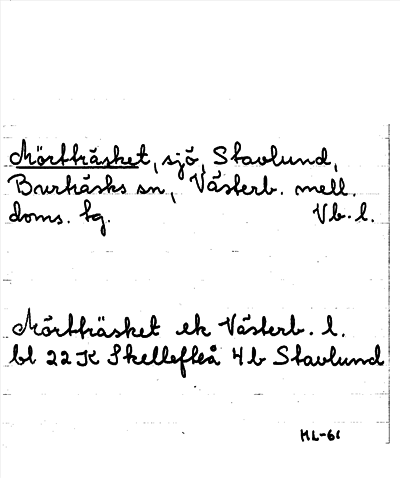 Mörtträsket, sjö, Stavlund,
Burträsks sn, Västerb. mell.
doms. tg. Vb. l.
Mörtträsket ek Västerb. l.
bl 22 K Skellefteå 4b Stavlund
ML-61